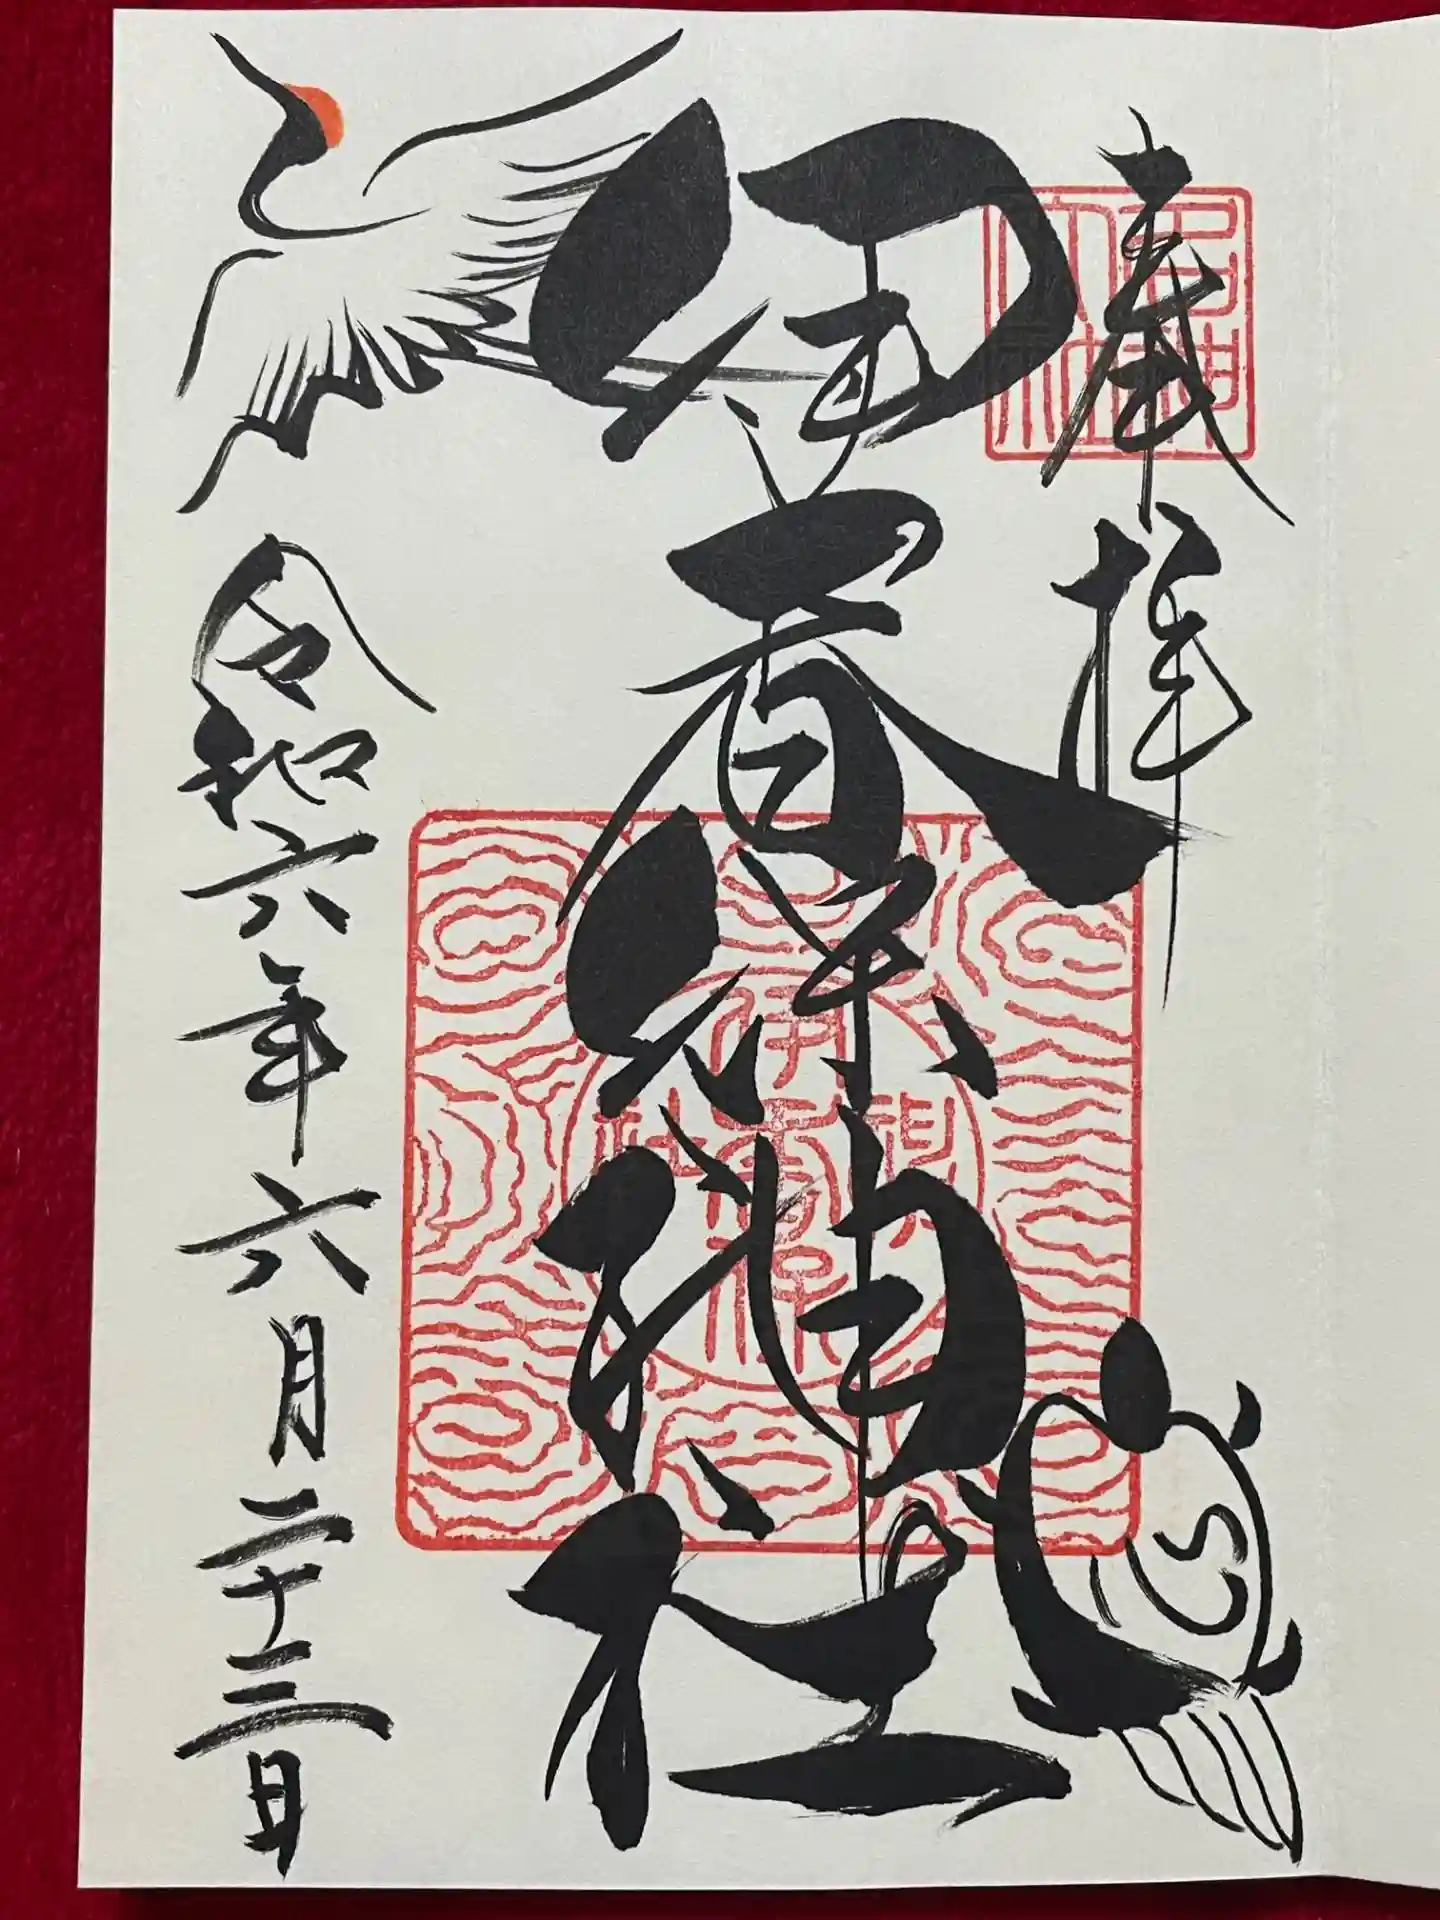 奉拝
伊香保神社
伊香保神社
令和六年六月二十三日